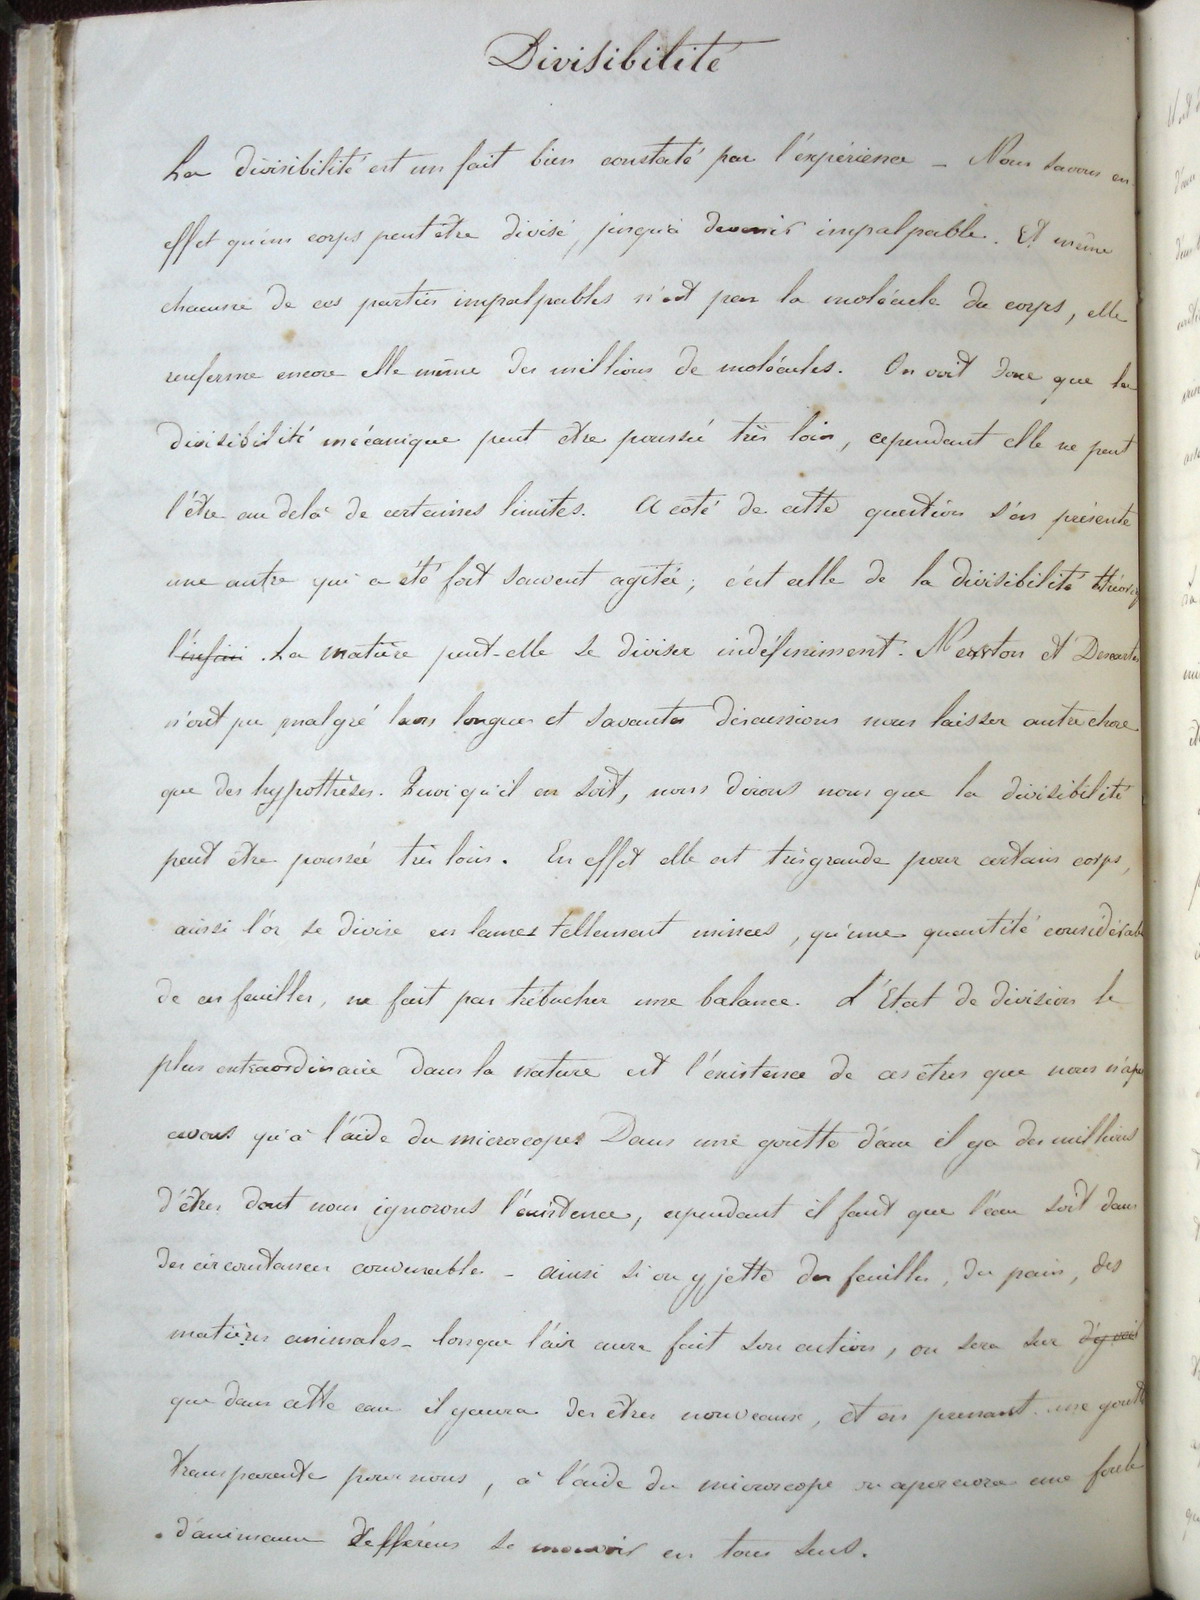 Divisibilité
La divisibilité est un fait bien constaté par l'expérience – Nous savons en
effet qu'un corps peut être divisé, jusqu'à devenir impalpable. Et même
chacune de ces parties impalpables n'est pas la molécule du corps, elle
renferme encore elle même des millions de molécules. On voit donc que la
divisibilité mécanique peut être poussée très loin, cependant elle ne peut
l'être au delà de certaines limites. A coté de cette question s'en présente
une autre qui a été fort souvent agitée, c'est celle de la divisibilité
l'infini. La matière peut-elle se diviser indéfiniment. Newton et Descartes
n'ont pu malgré leurs longues et savantes discussions nous laisser autre chose
que des hypothèses. Quoiqu'il en soit, nous dirons nous que la divisibilité
peut être poussée très loin. En effet elle est très grande pour certains corps,
ainsi l'or se divise en lames tellement minces, qu'une quantité considérab
de ces feuilles, ne fait pas trébucher une balance. L'Etat de division le
plus extraordinaire dans la nature est l'éxistence de ces êtres que nous n'ape
cevons qu'à l'aide du microscopes Dans une goutte d'eau il y a des millions
d'êtres dont nous ignorons l'existence, cependant il faut que l'eau soit dans
des circonstances convenables – ainsi si on y jette des feuilles, du pain, des
matières animales – lorsque l'air aura fait son action, on sera sur d'y voir
que dans cette eau il y aura des êtres nouveaux, et en prenant une goutte
transparente pour nous, à l'aide du microscope on apercevra une foule
d'animaux différens se mouvoir en tous sens.